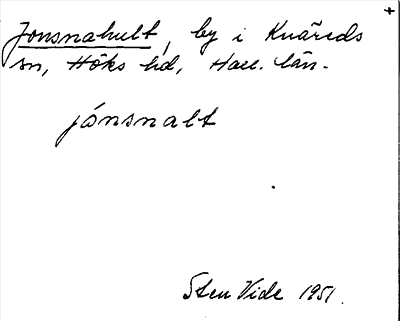 +
Jonsnahult, by i Knäreds
sn, Höks hd, Hall. län.
jónsnalt
Sten Vide 1951.